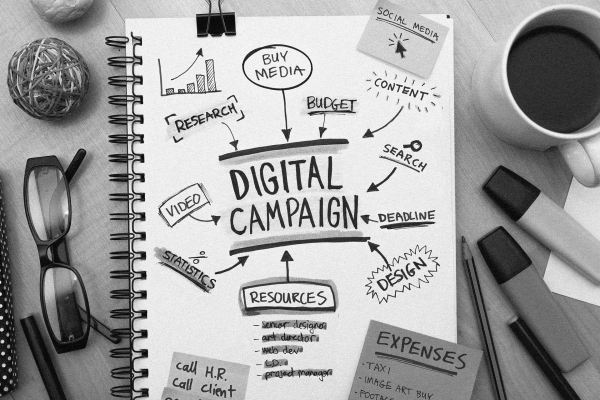 SOCIAL MEDIA
BUY
MEDIA
CONTENT
BUDGET
RESEARCH
SEARCH
DIGITAL
CAMPAIGN
VIDEO
DEADLINE
%
STATISTICS
DESIGN
RESOURCES
- senior designer
- art director
- web dev.
- project manager
call H.R.
call client
EXPENSES
- TAXI
- IMAGE ART BUY
- FOOTAGE